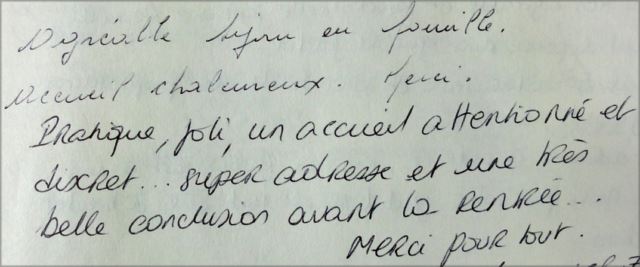 Agréable séjour en famille.
Accueil chaleureux. Merci.
Pratique, joli, un accueil attentionné et
discret... super adresse et une très
belle conclusion avant la rentrée...
Merci pour tout.